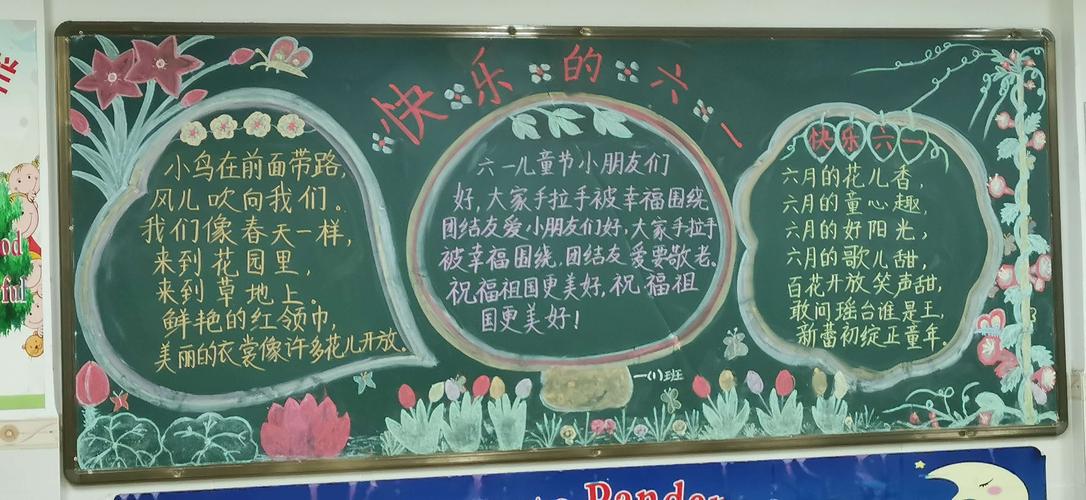 快乐的六一
小鸟在前面带路,
风儿吹向我们。
我们像春天一样,
来到花园里,
来到草地上。
鲜艳的红领巾,
美丽的衣裳像许多花儿开放.
六一儿童节小朋友们
好,大家手拉手被幸福围绕
团结友爱小朋友们好,大家手拉手
被幸福围绕,团结友爱要敬老。
祝福祖国更美好,祝福祖
国更美好!
一(1)班
快乐六一
六月的花儿香,
六月的童心趣,
六月的好阳光,
六月的歌儿甜,
百花开放笑声甜,
敢问瑶台谁是王,
新蕾初绽正童年.